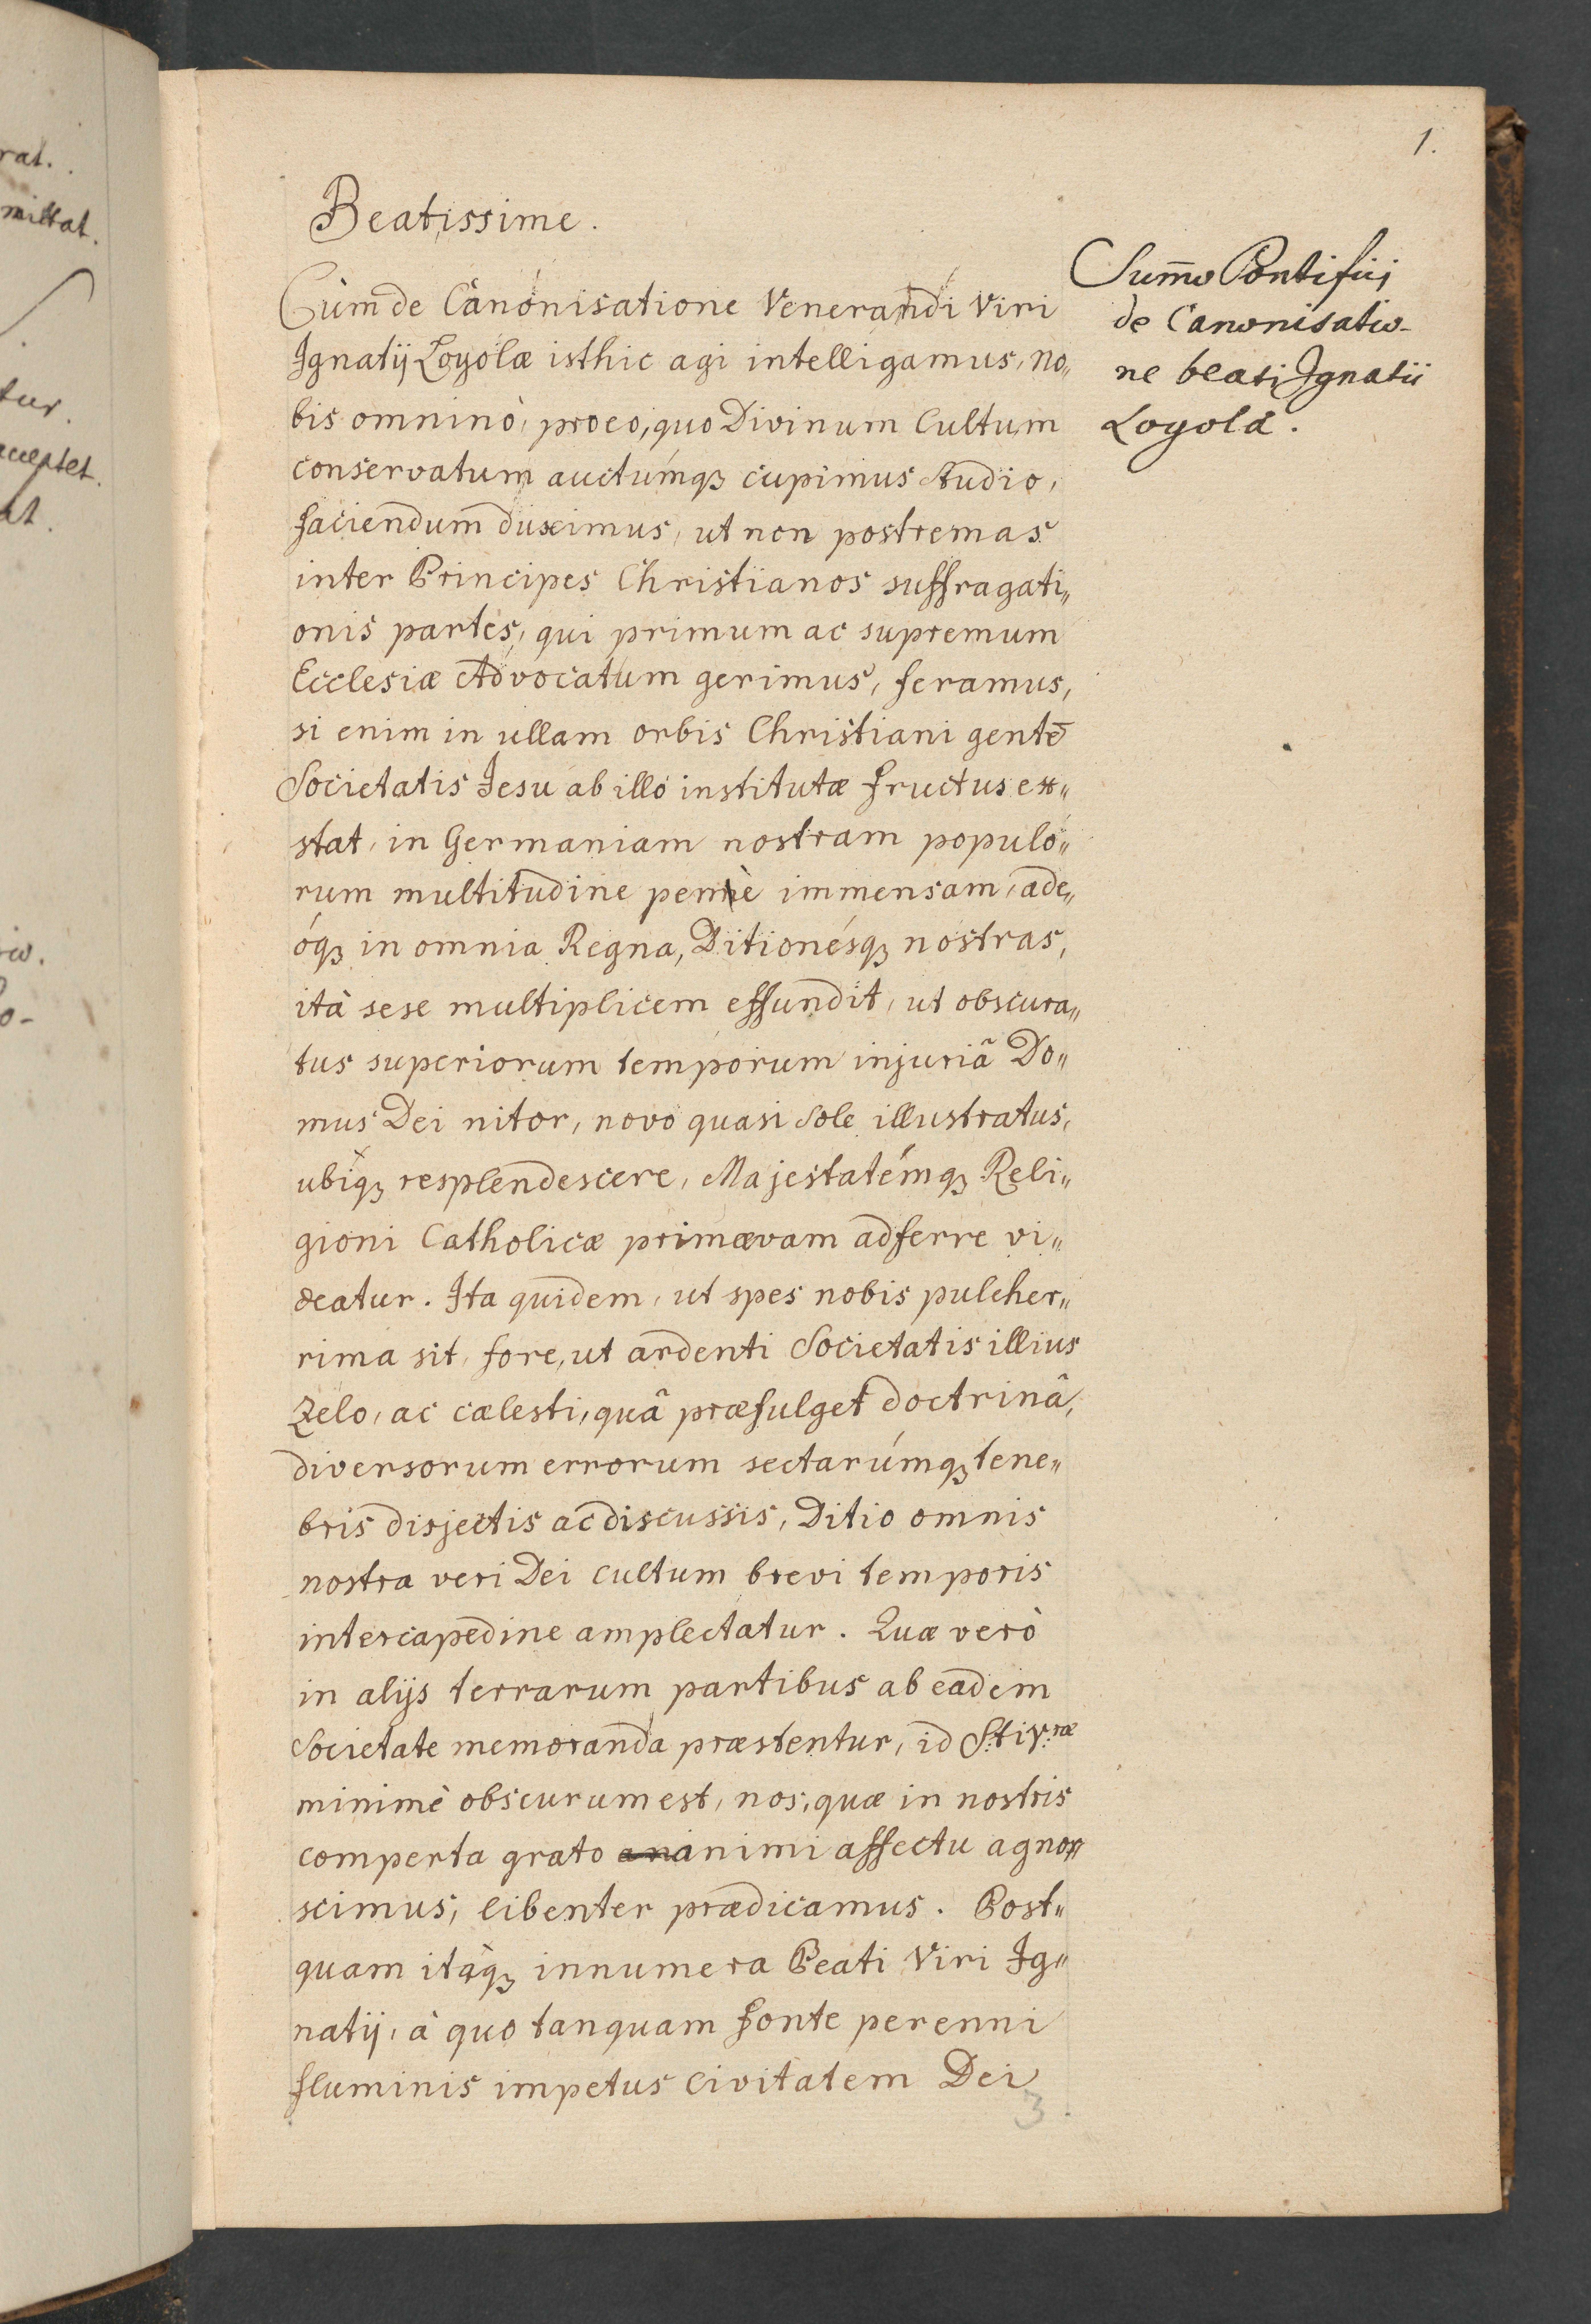 1.
Beatissime.
Summo Pontifici
de Canonisatio-
ne beati Ignatii
Loyola.
Cùm de Canonisatione Venerandi Viri
Ignatij Loyolæ isthic agi intelligamus, no„
bis omninò, pro eo, quo Divinum Cultum
conservatum auctúmqꝫ cupimus studio,
faciendum duximus, ut non postremas
inter Principes Christianos suffragati„
onis partes, qui primum ac supremum
Ecclesiæ Advocatum gerimus, feramus,
si enim in ullam orbis Christiani gentē
Societatis Jesu ab illo institutæ fructus ex„
stat, in Germaniam nostram populo„
rum multitudine penè immensam, ade„
óqꝫ in omnia Regna, Ditionésqꝫ nostras,
ità sese multiplicem effundit, ut obscura„
tus superiorum temporum injuriâ Do„
mus Dei nitor, novo quasi Sole illustratus,
ubiqꝫ resplendescere, Majestatémqꝫ Reli„
gioni Catholicæ primævam adferre vi„
deatur. Ita quidem, ut spes nobis pulcher„
rima sit, fore, ut ardenti Societatis illius
Zelo, ac cælesti, quâ præfulget doctrinâ,
diversorum errorum sectarúmqꝫ tene„
bris disjectis ac discussis, Ditio omnis
nostra veri Dei cultum brevi temporis
intercapedine amplectatur. Quæ verò
in alijs terrarum partibus ab eadem
Societate memoranda præstentur, id S.ti V.ræ
minimè obscurum est, nos, quæ in nostris
comperta grato animi affectu agno„
scimus, libenter prædicamus. Post„
quam itaqꝫ innumera Beati Viri Ig„
natij, à quo tanquam fonte perenni
fluminis impetus Civitatem Dei
3
rat.
mittat.
tur.
acceptet.
at.